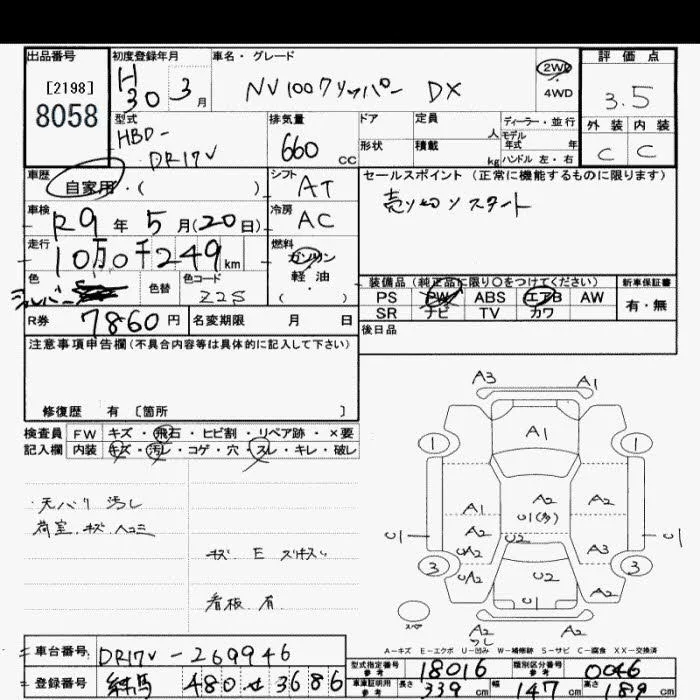 出品番号 初度登録年月 車名・グレード 2WD 評価点
[2198] H NV100クリッパー DX 4WD 3.5
8058 30 3月
型式 排気量 ドア 定員 人 ディーラー・並行 外装 内装
HBD- 660 CC 形状 積載 kg モデル年式 年式 C C
DR17V ハンドル 左・右
車歴 自家用・( ) シフト AT セールスポイント (正常に機能するものに限ります)
車検 R9年 5月(20日) 冷房 AC 売り切りスタート
走行 10万0千249km 燃料 ガソリン
軽油
( )
色 シルバー 色替 色コード Z2S
装備品 (純正品に限り〇をつけてください) 新車保証書
PS PW ABS エアB AW 有・無
SR ナビ TV カワ
R券 7860円 名変期限 月 日 後日品
注意事項申告欄(不具合内容等は具体的に記入して下さい)
修復歴 有 〔箇所 〕
検査員 FW キズ・飛石・ヒビ割・リペア跡・×要
記入欄 内装 キズ・汚レ・コゲ・穴・スレ・キレ・破レ
天バリ 汚レ
荷室.キズ.ヘコミ
キズ E
看板 有
A3 A1
1 A1 1
A1 A2 A2
U1(多)
U1 A2 U2 A3 U1
UA2
3 UA2 U2 A2 3
U1
スペア A2 A2
A-キズ E-エクボ U-凹み W-補修跡 S-サビ C-腐食 XX-交換済
車台番号 DR17V-269946
型式指定番号 参考 18016 類別区分番号 参考 0046
登録番号 練馬 480 せ 3686
車庫証明用 参考 長さ 339cm 幅 147cm 高さ 189cm